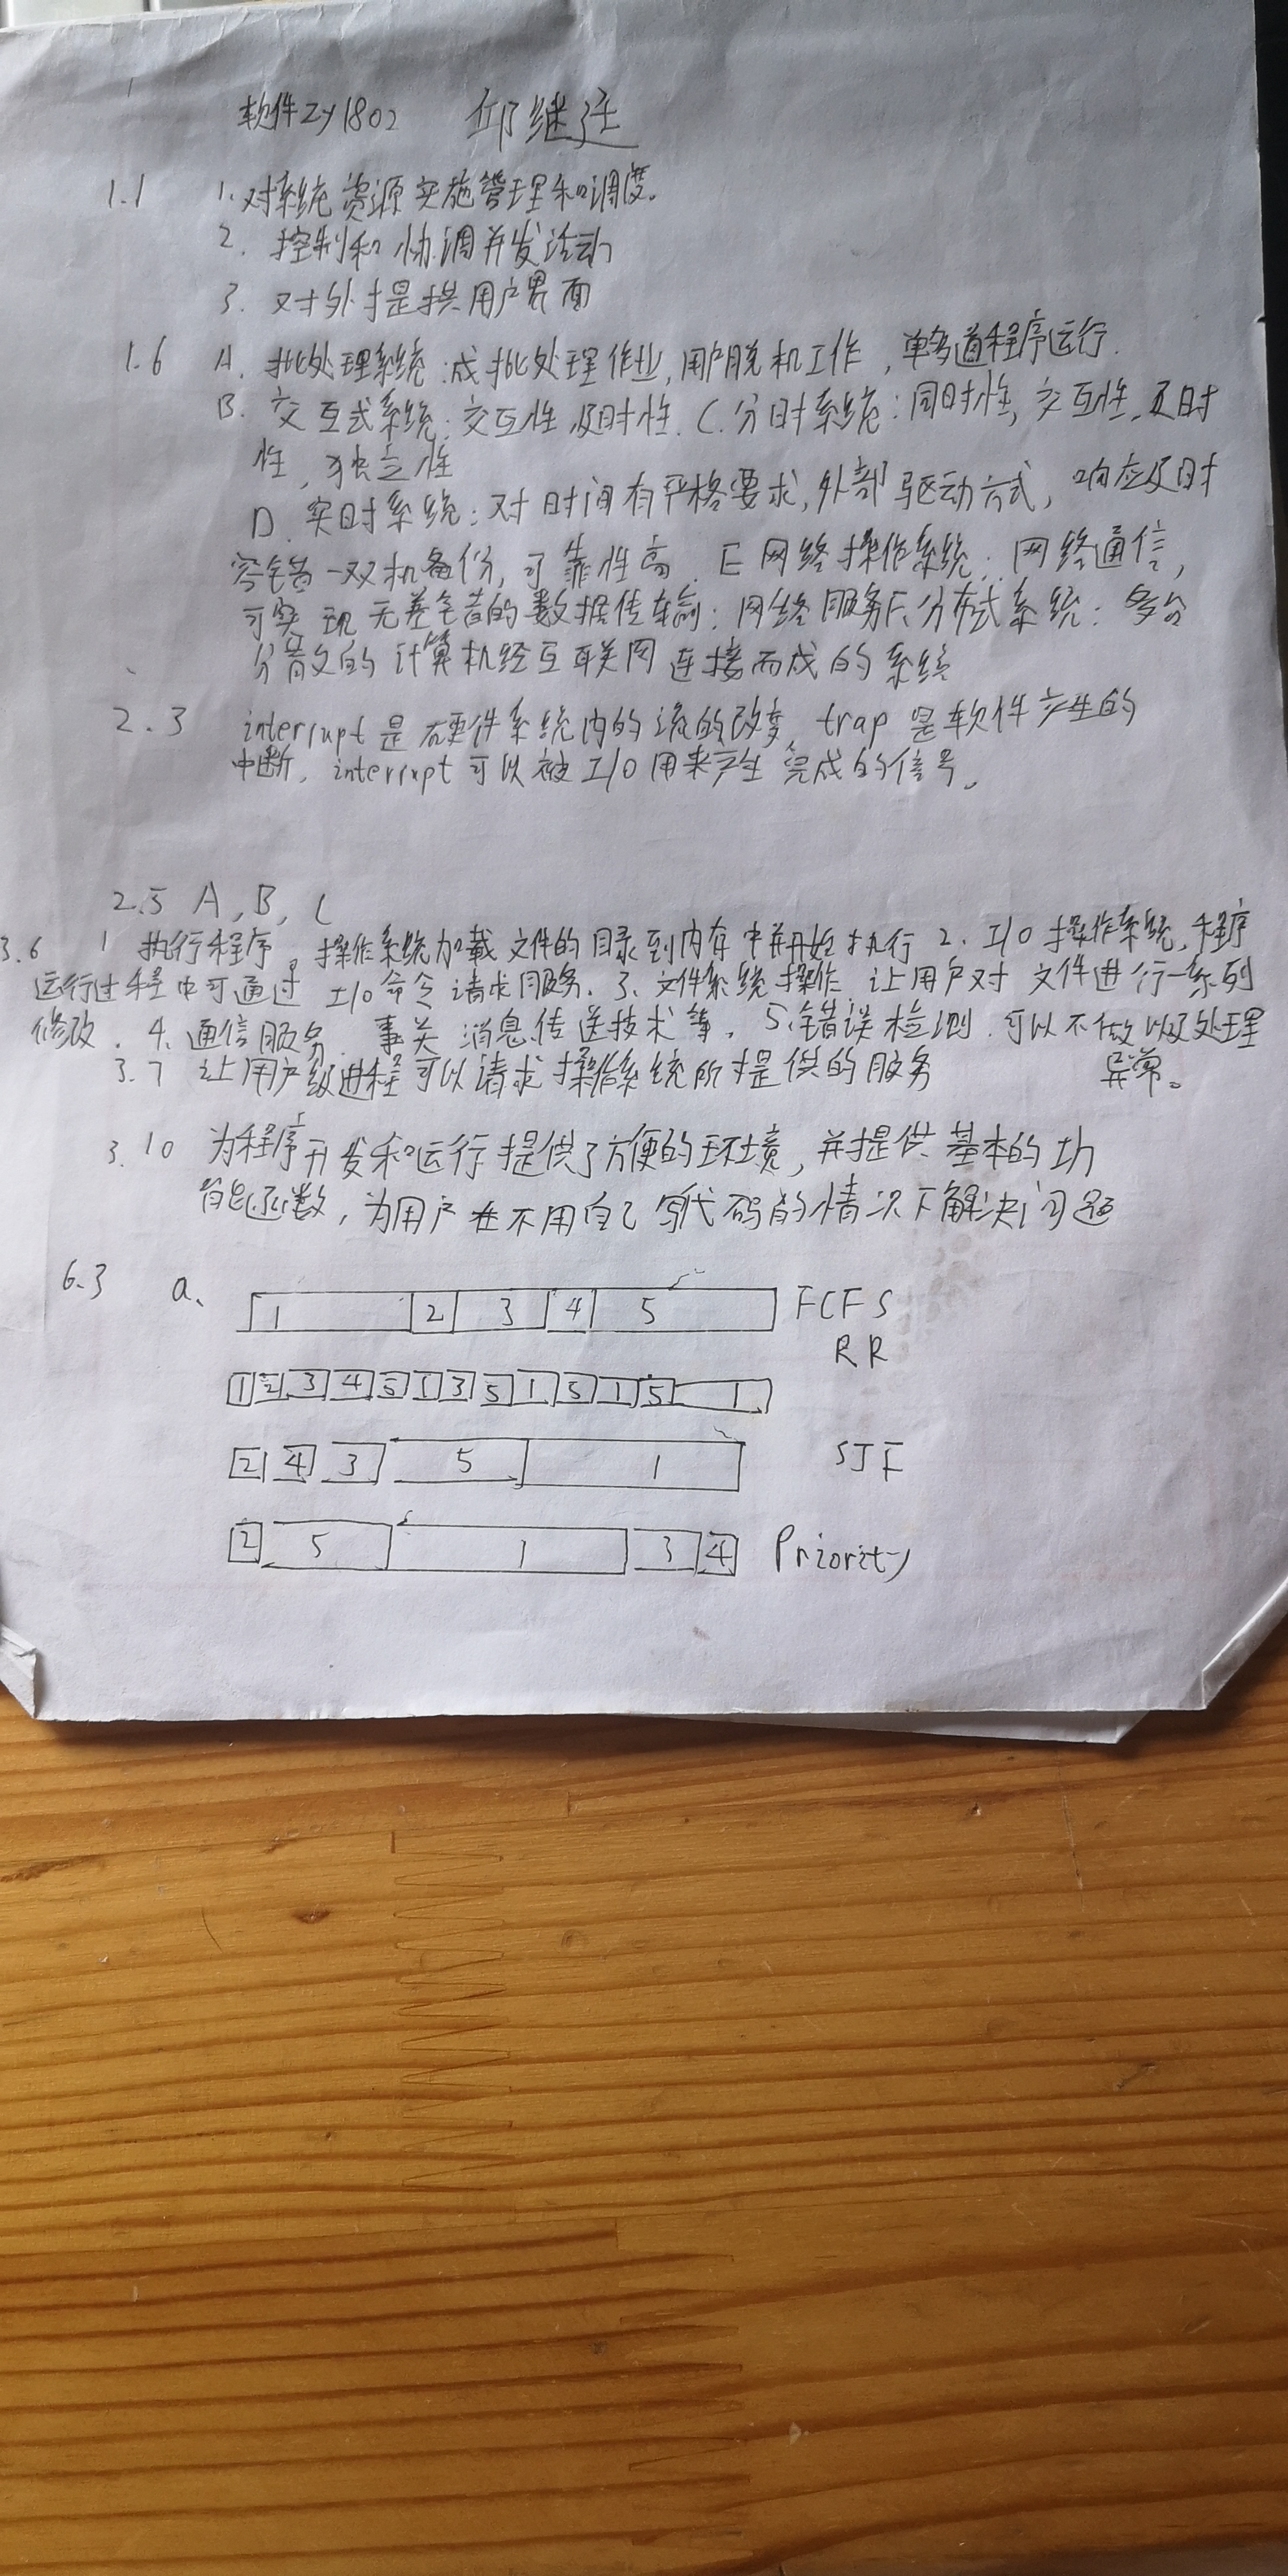 软件zy1802 邱继廷
1.1 1.对系统资源实施管理和调度.
2. 控制和协调并发活动
3. 对外提供用户界面
1.6 A. 批处理系统:成批处理作业,用户脱机工作,单多道程序运行.
B. 交互式系统:交互性,及时性. C.分时系统:同时性,交互性,及时
性,独立性
D. 实时系统:对时间有严格要求,外部驱动方式,响应及时
容错—双机备份,可靠性高. E 网络操作系统:网络通信,
可实现无差错的数据传输;网络服务F.分布式系统:多台
分散的计算机经互联网连接而成的系统
2.3 interrupt是硬件系统内的流的改变,trap是软件产生的
中断,interrupt可以被I/O用来产生完成的信号。
2.5 A,B,C
3.6 1 执行程序。操作系统加载文件的目录到内存中并开始执行 2. I/O操作系统,程序
运行过程中可通过I/O命令请求服务. 3.文件系统操作 让用户对文件进行一系列
修改. 4.通信服务. 事关 消息传送技术等. 5.错误检测 可以不做以及处理
异常。
3.7 让用户级进程可以请求操作系统所提供的服务
3.10 为程序开发和运行提供了方便的环境,并提供基本的功
能函数,为用户在不用自己写代码的情况下解决问题
6.3 a、 1 2 3 4 5 FCFS
RR
1 2 3 4 5 1 3 5 1 5 1 5 1
2 4 3 5 1 SJF
2 5 1 3 4 Priority